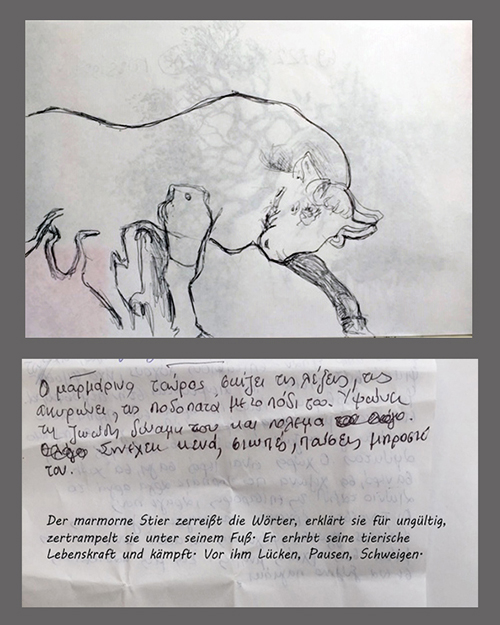 Ο μαρμάρινος ταύρος σκίζει τις λέξεις, τις
ακυρώνει, τις ποδοπατά με το πόδι του. Υψώνει
τη ζωώδη δύναμη του και πολεμά
Συνέχεια κενά, σιωπές, παύσεις μπροστά
του.
Der marmorne Stier zerreißt die Wörter, erklärt sie für ungültig,
zertrampelt sie unter seinem Fuß. Er erhrbt seine tierische
Lebenskraft und kämpft. Vor ihm Lücken, Pausen, Schweigen.